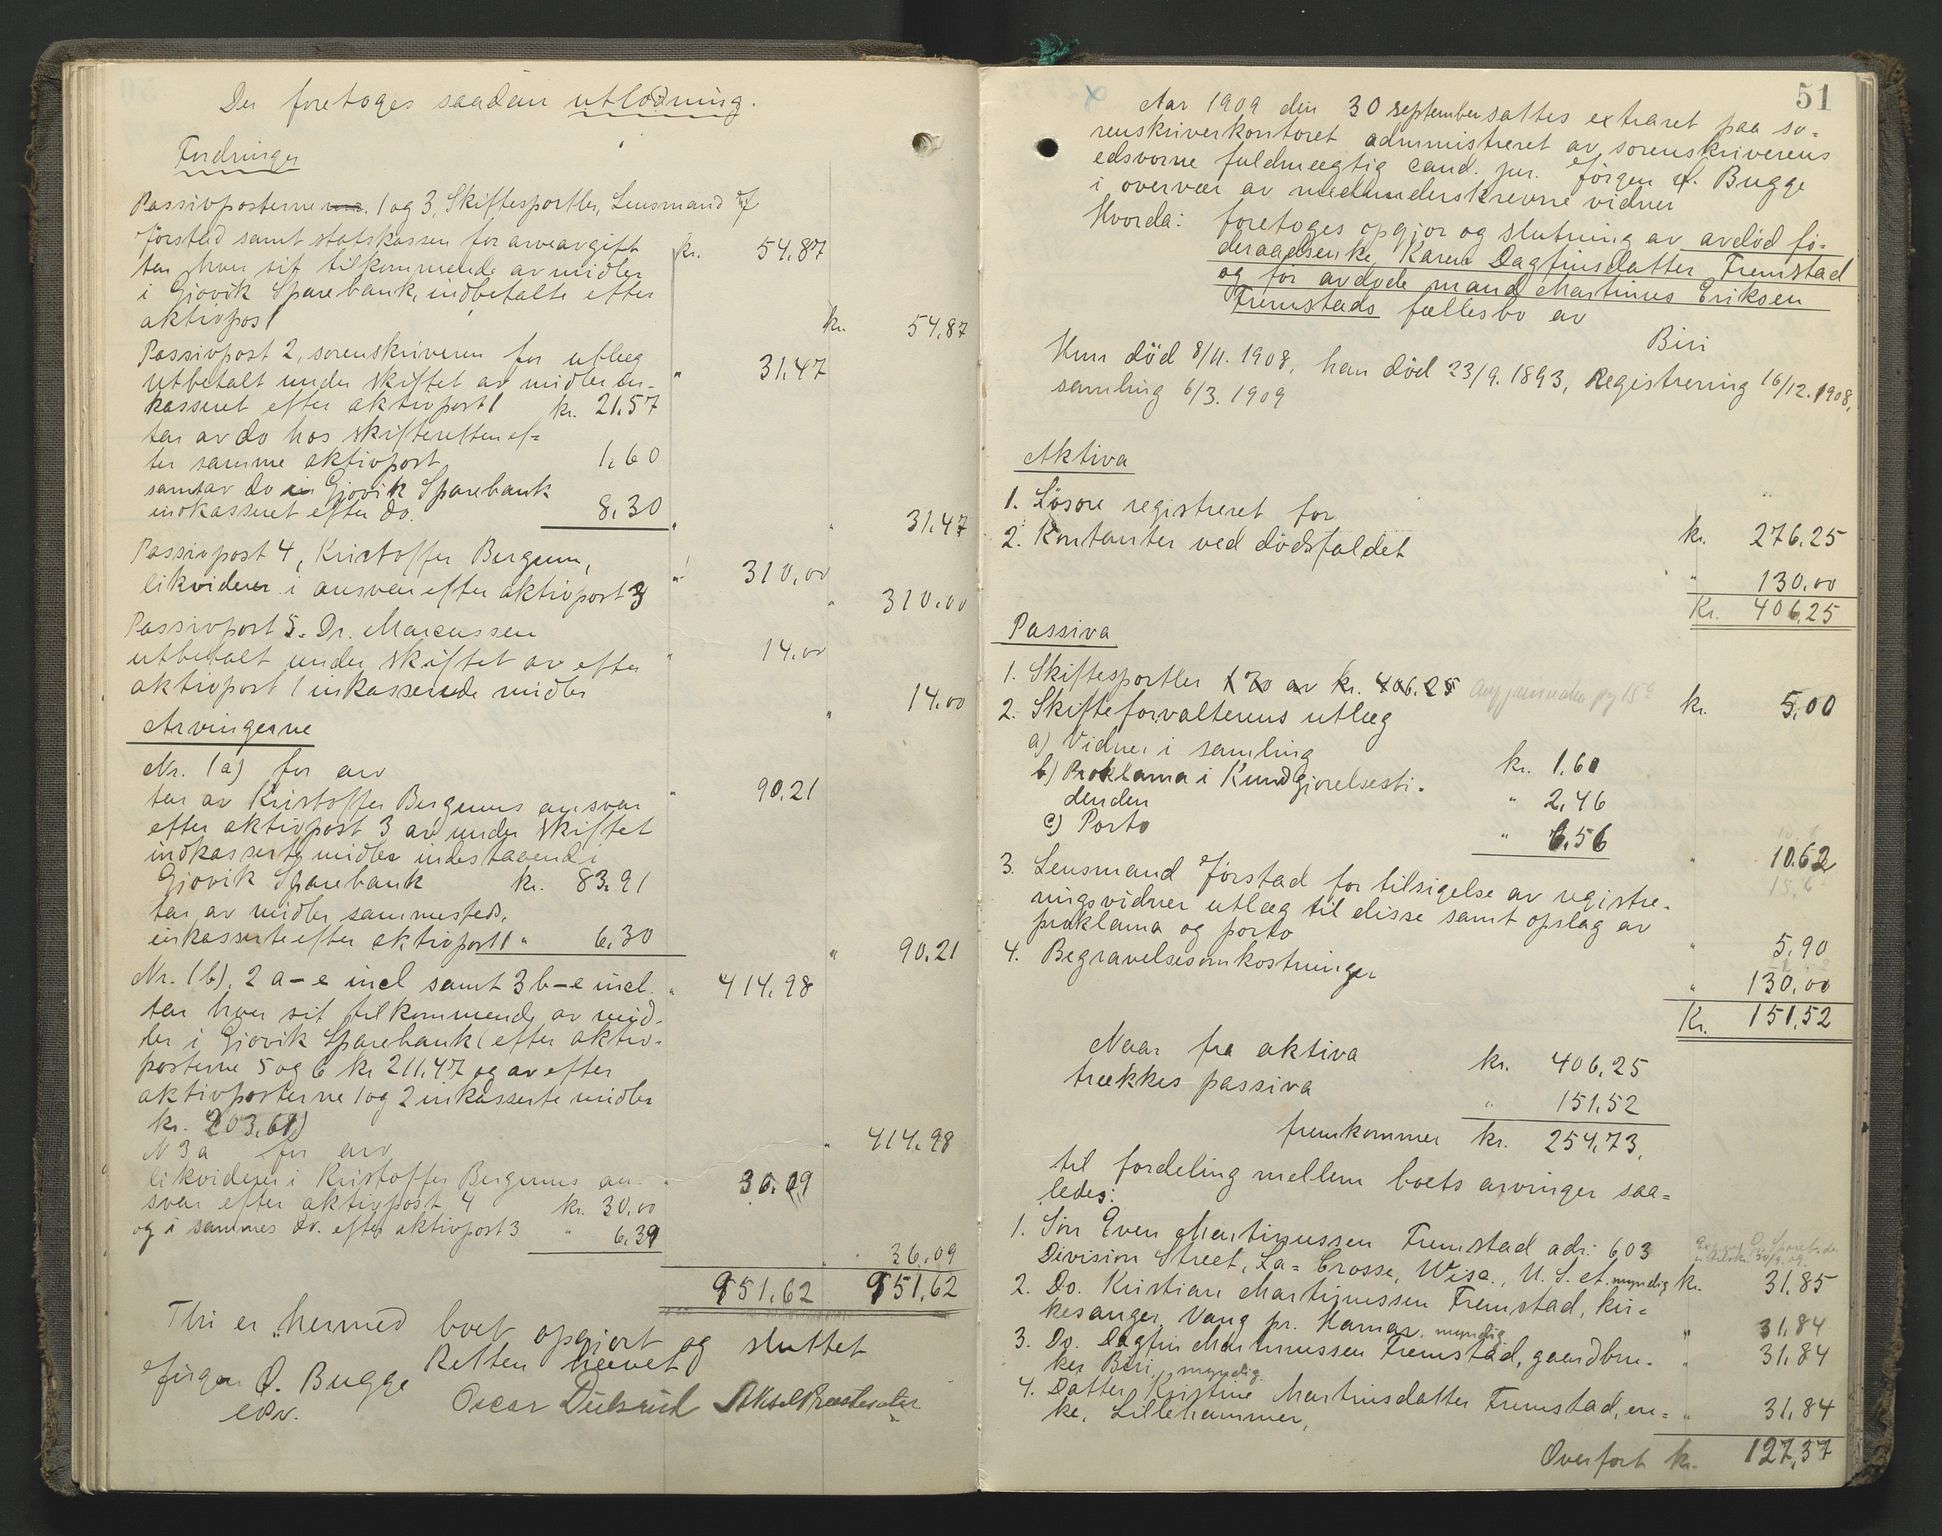 Der foretoges saadan utlodning.
Fordringer
Passivposterne 1 og 3, Skiftesportler, Lensmand
Jørstad samt statskassen for arveavgift kr. 54,87
tar hver sit tilkommende av midler
i Gjøvik Sparebank, indbetalte efter
aktivpost 1 kr. 54,87
Passivpost 2, sorenskriveren for utlæg " 31,47
utbetalt under skiftet av midler in-
kasseret efter aktivpost 1 kr. 21.57
tar av do hos skifteretten ef-
ter samme aktivpost 1,60
samt av do i Gjøvik Sparebank
indkasseret efter do. 8,30
" " 31.47
Passivpost 4, Kristoffer Bergum, " 310,00
likviderer i ansvar efter aktivpost 3
" 310.00
Passivpost 5. Dr. Marcussen " 14.00
utbetalt under skiftet av efter
aktivpost 1 inkasserede midler
" 14.00
Arvingerne
Nr. 1 a) for arv " 90.21
tar av Kristoffer Bergums ansvar
efter aktivpost 3 av under skiftet
indkasserte midler indestaaende i
Gjøvik Sparebank kr. 83.91
tar av midler sammesteds,
inkasserte efter aktivpost 1 " 6.30
" 90.21
Nr. 1 b), 2 a-e incl samt 3 b-e incl. " 414.98
tar hver sit tilkommende av mid-
ler i Gjøvik Sparebank (efter aktiv-
posterne 5 og 6 kr 211.47 og av efter
aktivposterne 1 og 2 inkasserte midler
kr. 203,61)
" 414.98
N 3 a for arv
likviderer i Kristoffer Bergums an- " 36.09
svar efter aktivpost 4 kr. 30,00
og i sammes do. efter aktivpost 3 "
" 36.09
951,62 951,62
Thi er hermed boet opgjort og sluttet
Retten hævet
Jørgen Ø. Bugge
Oscar Dulsrud
51
Aar 1909 den 30 september sattes extraret paa so-
renskriverkontoret administreret av sorenskriverens
edsvorne fuldmægtig cand. jur. Jørgen Ø. Bugge
i overvær av medunderskrevne vidner
Hvorda: foretoges opgjør og slutning av avdød fø-
deraadsenke Karen Dagfinsdatter Fremstad
og før avdøde mand Martinus Eriksen
Fremstads fællesbo av
Biri
Hun død 8/11. 1908, han død 23/9. 1893, Registrering 16/12. 1908,
samling 6/3. 1909
Aktiva
1. Løsøre registreret for kr. 276.25
2. Kontanter ved dødsfaldet " 130.00
Kr. 406.25
Passiva
1. Skiftesportler av kr. 406.25 kr. 5,00
2. Skifteforvalterens utlæg
a) Vidner i samling kr. 1.60
b) Proklama i Kundgjørelsesti-
denden " 2,46
c) Porto " 6,56
" 10.62
3. Lensmand Jørstad for tilsigelse av registre-
ringsvidner utlæg til disse samt opslag av
proklama og porto " 5,90
4. Begravelsesomkostninger " 130,00
Kr. 151,52
Naar fra aktiva kr. 406,25
trækkes passiva " 151,52
fremkommer kr. 254,73,
til fordeling mellem boets arvinger saa-
ledes:
1. Søn Even Martinussen Fremstad adr: 603
Division Street, La=Crosse, Wisc., U. S. A. myndig kr. 31,85
2. Do. Kristian Martinussen Fremstad, kir-
kesanger, Vang pr. Hamar, myndig " 31,84
3. Do. Dagfin Martinussen Fremstad, gaardbru-
ker Biri, myndig. " 31,84
4. Datter Kristine Martinusdatter Fremstad, en-
ke, Lillehammer, " 31,84
Overført kr. 127,37